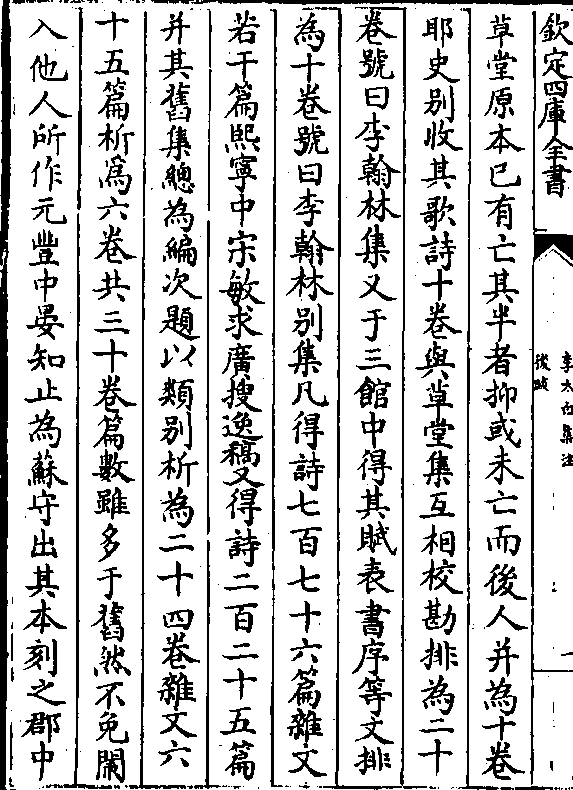 欽定四庫全書
李太白集注
後跋
一
草堂原本已有亡其半者抑或未亡而後人并為十卷
耶史别收其歌詩十卷與草堂集互相校勘排為二十
卷號曰李翰林集又于三館中得其賦表書序等文排
為十卷號曰李翰林别集凡得詩七百七十六篇雜文
若干篇熙寧中宋敏求廣搜逸稿又得詩二百二十五篇
并其舊集總為編次題以類别析為二十四卷雜文六
十五篇析為六卷共三十卷篇數雖多于舊然不免闌
入他人所作元豐中晏知止為蘇守出其本刻之郡中